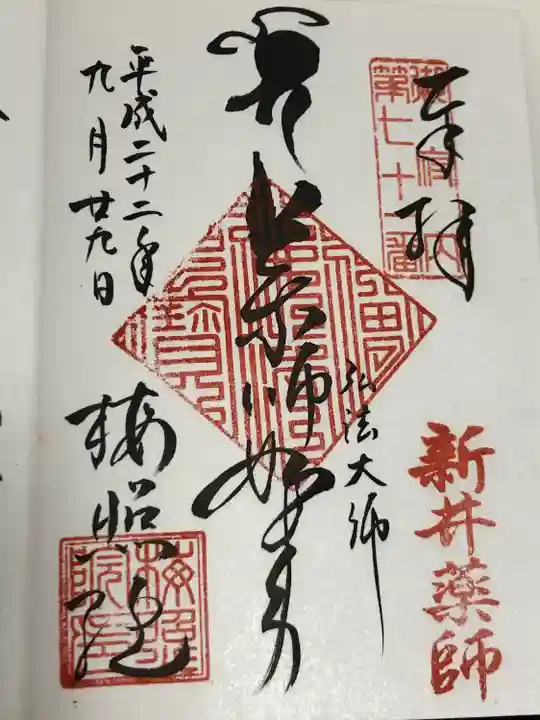 奉拝
御府内
第七十一番
新井薬師
薬師如来
弘法大師
平成二十二年
九月廿九日
梅照院